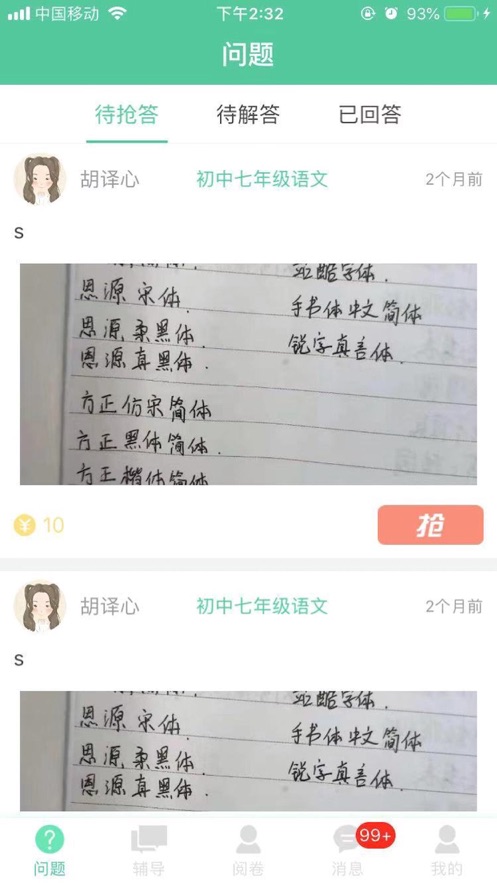 中国移动 下午2:32 93%
问题
待抢答 待解答 已回答
胡译心 初中七年级语文 2个月前
s
站酷字体.
思源 宋体. 手书体 中文简体
思源 柔黑体. 锐字真言体.
思源 真黑体.
方正仿宋简体
方正黑体简体.
方正楷体简体
¥ 10 抢
胡译心 初中七年级语文 2个月前
s
站酷字体.
思源 宋体. 手书体 中文简体
思源 柔黑体. 锐字真言体.
思源 真黑体.
99+
问题 辅导 阅卷 消息 我的